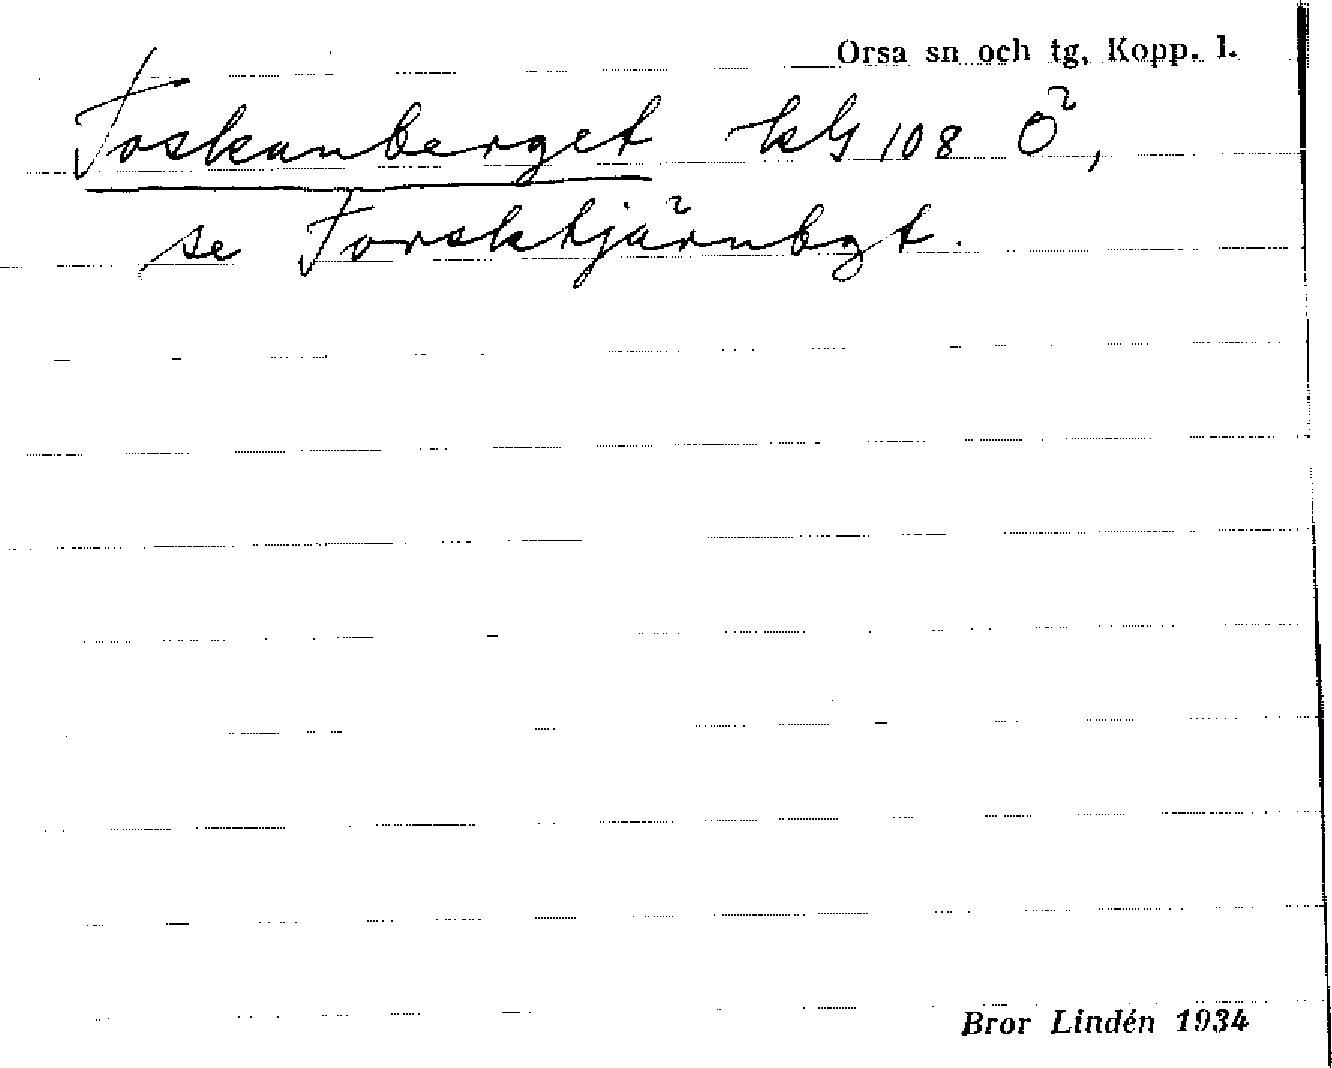 Orsa sn och tg, Kopp. l.
Toskanberget kbl 108 Ö,
se Forsktjärnbgt.
Bror Lindén 1934